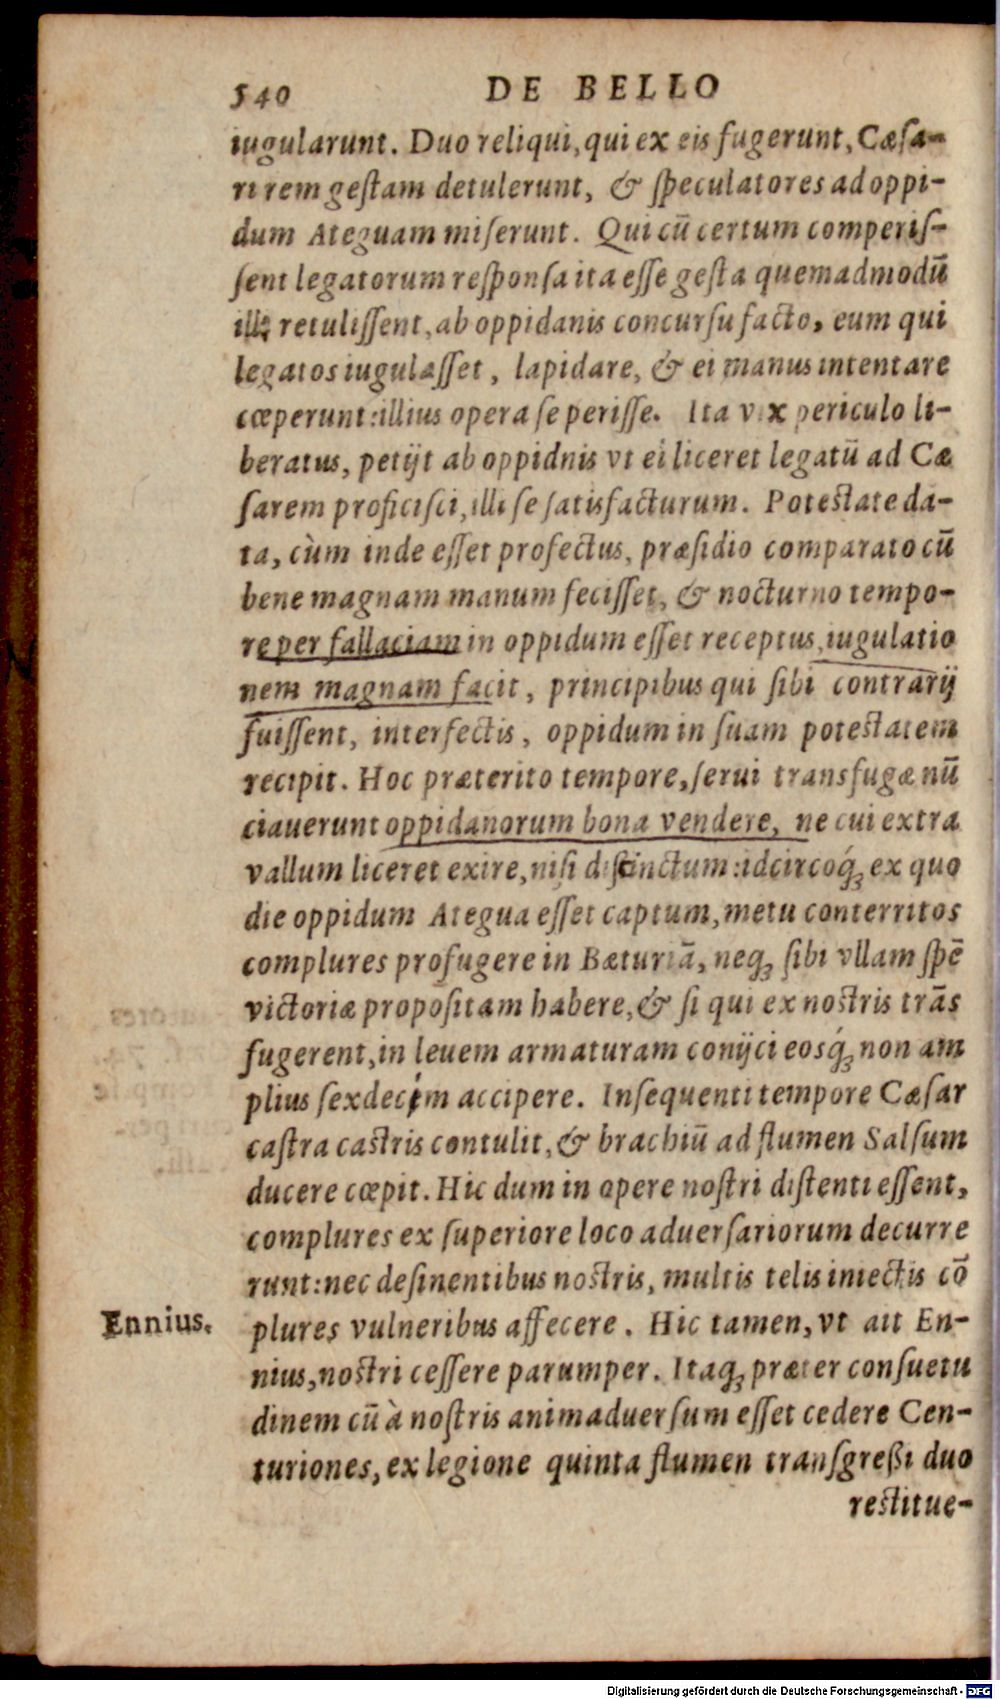 540 DE BELLO
iugularunt. Duo reliqui, qui ex eis fugerunt, Cæſa-
ri rem geſtam detulerunt, & ſpeculatores ad oppi-
dum Ateguam miſerunt. Qui cū certum comperiſ-
ſent legatorum reſponſa ita eſſe geſta quemadmodū
illi retuliſſent, ab oppidanis concurſu facto, eum qui
legatos iugulaſſet, lapidare, & ei manus intentare
cœperunt: illius opera ſe periſſe. Ita vix periculo li-
beratus, petijt ab oppidnis vt ei liceret legatū ad Cæ
ſarem proficiſci, illi ſe ſatisfacturum. Poteſtate da-
ta, cùm inde eſſet profectus, præſidio comparato cū
bene magnam manum feciſſet, & nocturno tempo-
re per fallaciam in oppidum eſſet receptus, iugulatio
nem magnam facit, principibus qui ſibi contrarij
fuiſſent, interfectis, oppidum in ſuam poteſtatem
recipit. Hoc præterito tempore, ſerui transfugæ nū
ciauerunt oppidanorum bona vendere, ne cui extra
vallum liceret exire, niſi diſcinctum: idcircoq́ꝫ ex quo
die oppidum Ategua eſſet captum, metu conterritos
complures profugere in Bæturiā, neqꝫ ſibi vllam ſpē
victoriæ propoſitam habere, & ſi qui ex noſtris trāſ
fugerent, in leuem armaturam conijci eosq́ꝫ non am
plius ſexdecim accipere. Inſequenti tempore Cæſar
caſtra caſtris contulit, & brachiū ad flumen Salſum
ducere cœpit. Hic dum in opere noſtri diſtenti eſſent,
complures ex ſuperiore loco aduerſariorum decurre
runt: nec deſinentibus noſtris, multis telis iniectis cō
plures vulneribus affecere. Hic tamen, vt ait En-
Ennius.
nius, noſtri ceſſere parumper. Itaqꝫ præter conſuetu
dinem cū à noſtris animaduerſum eſſet cedere Cen-
turiones, ex legione quinta flumen tranſgreßi duo
reſtitue-
Digitalisierung gefördert durch die Deutsche Forschungsgemeinschaft - DFG